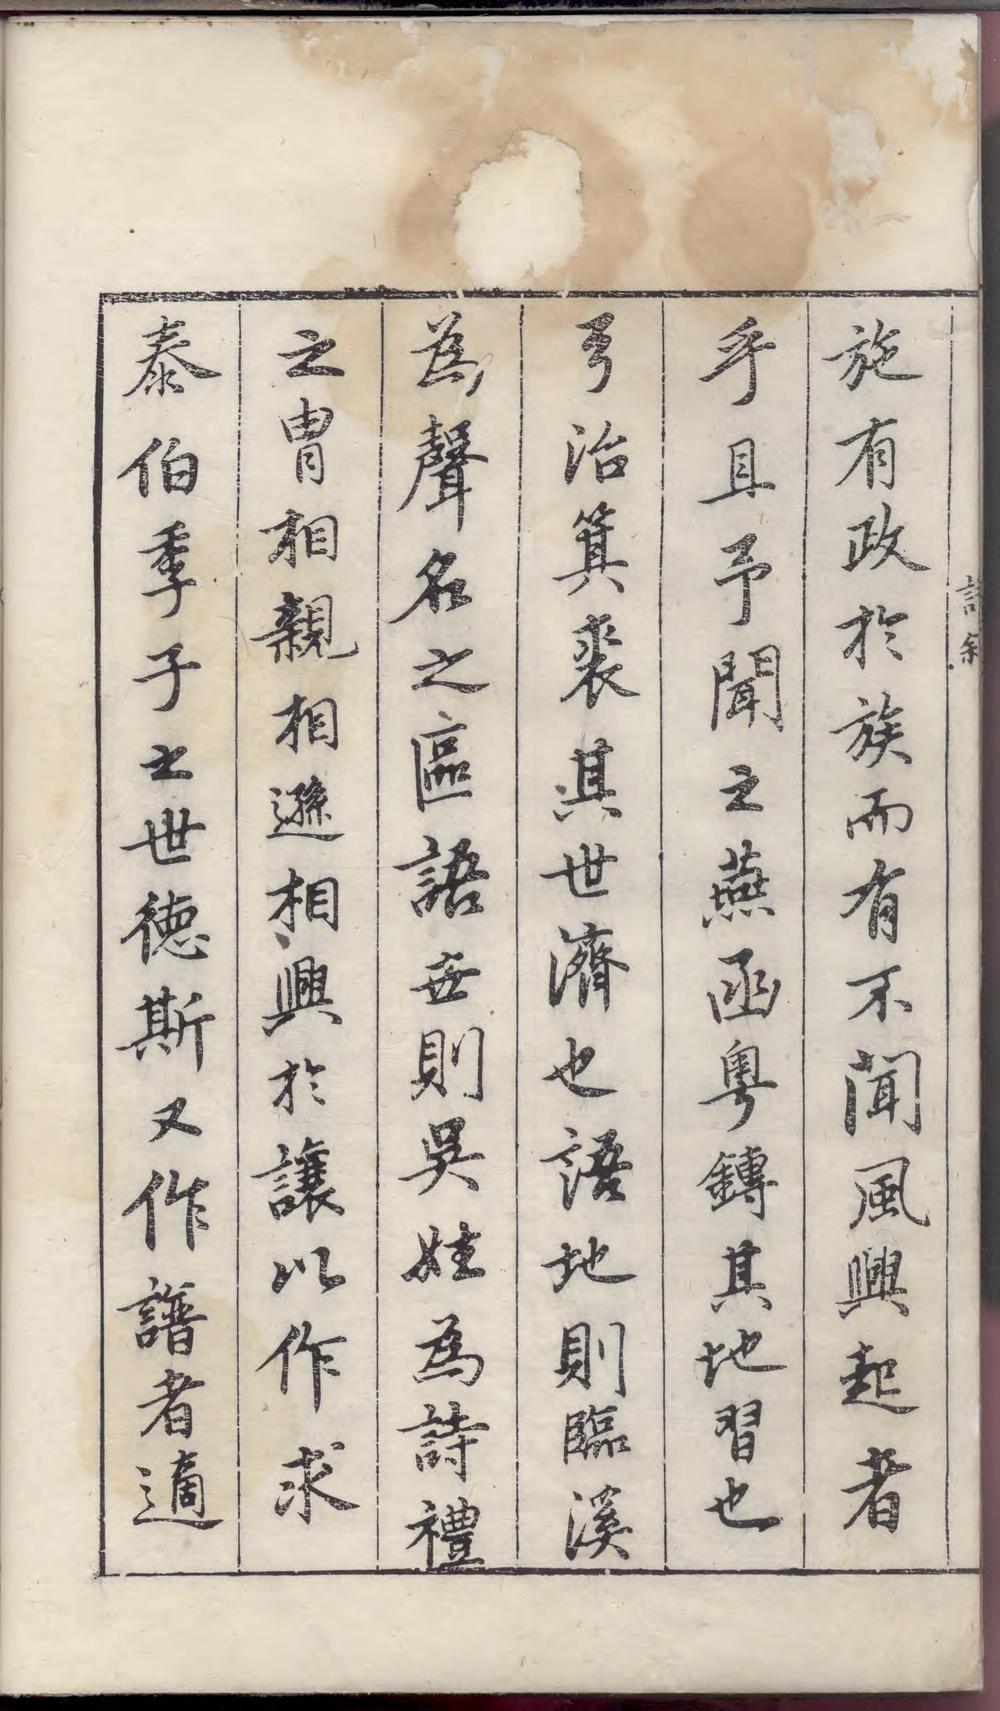 施有政於族而有不聞風興起者
乎且予聞之燕函粵鎛其地習也
弓治箕裘其世濟也語地則臨溪
為聲名之區語世則吳姓為詩禮
之胄相親相遜相興於讓以作求
泰伯季子之世德斯又作譜者適